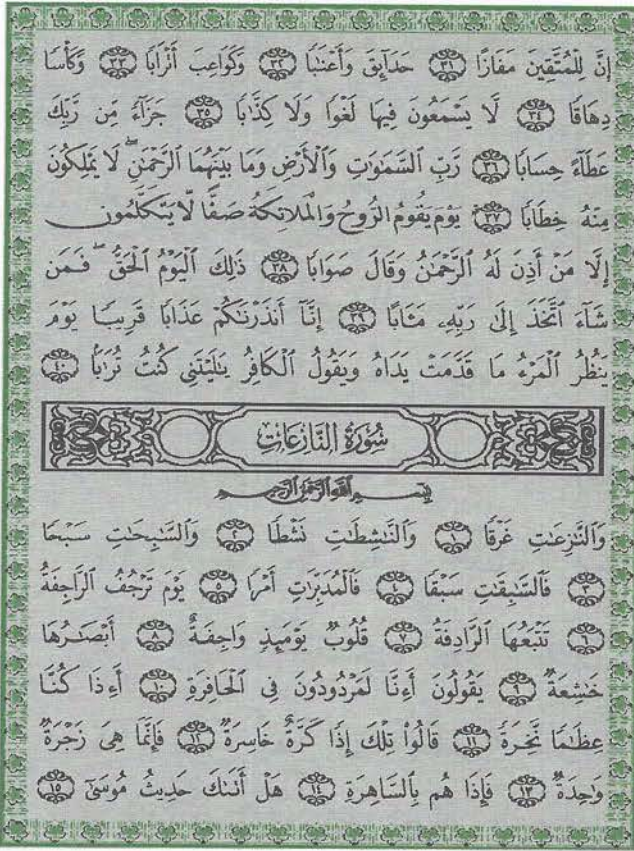 إِنَّ لِلْمُتَّقِينَ مَفَازًا ٣١ حَدَآئِقَ وَأَعْنَٰبًا ٣٢ وَكَوَاعِبَ أَتْرَابًا ٣٣ وَكَأْسًا
دِهَاقًا ٣٤ لَا يَسْمَعُونَ فِيهَا لَغْوًا وَلَا كِذَّٰبًا ٣٥ جَزَآءً مِّن رَّبِّكَ
عَطَآءً حِسَابًا ٣٦ رَّبِّ السَّمَٰوَٰتِ وَالْأَرْضِ وَمَا بَيْنَهُمَا الرَّحْمَٰنِ ۖ لَا يَمْلِكُونَ
مِنْهُ خِطَابًا ٣٧ يَوْمَ يَقُومُ الرُّوحُ وَالْمَلَائِكَةُ صَفًّا ۖ لَّا يَتَكَلَّمُونَ
إِلَّا مَنْ أَذِنَ لَهُ الرَّحْمَٰنُ وَقَالَ صَوَابًا ٣٨ ذَٰلِكَ الْيَوْمُ الْحَقُّ ۖ فَمَن
شَآءَ اتَّخَذَ إِلَىٰ رَبِّهِۦ مَـَٔابًا ٣٩ إِنَّآ أَنذَرْنَٰكُمْ عَذَابًا قَرِيبًا يَوْمَ
يَنظُرُ الْمَرْءُ مَا قَدَّمَتْ يَدَاهُ وَيَقُولُ الْكَافِرُ يَٰلَيْتَنِى كُنتُ تُرَٰبًا ٤٠
سُورَةُ النَّازِعَاتِ
بِسْمِ اللَّهِ الرَّحْمَٰنِ الرَّحِيمِ
وَالنَّٰزِعَٰتِ غَرْقًا ١ وَالنَّٰشِطَٰتِ نَشْطًا ٢ وَالسَّٰبِحَٰتِ سَبْحًا
٣ فَالسَّٰبِقَٰتِ سَبْقًا ٤ فَالْمُدَبِّرَٰتِ أَمْرًا ٥ يَوْمَ تَرْجُفُ الرَّاجِفَةُ
٦ تَتْبَعُهَا الرَّادِفَةُ ٧ قُلُوبٌ يَوْمَئِذٍ وَاجِفَةٌ ٨ أَبْصَٰرُهَا
خَٰشِعَةٌ ٩ يَقُولُونَ أَءِنَّا لَمَرْدُودُونَ فِى الْحَافِرَةِ ١٠ أَءِذَا كُنَّا
عِظَٰمًا نَّخِرَةً ١١ قَالُوا۟ تِلْكَ إِذًا كَرَّةٌ خَاسِرَةٌ ١٢ فَإِنَّمَا هِىَ زَجْرَةٌ
وَٰحِدَةٌ ١٣ فَإِذَا هُم بِالسَّاهِرَةِ ١٤ هَلْ أَتَىٰكَ حَدِيثُ مُوسَىٰٓ ١٥